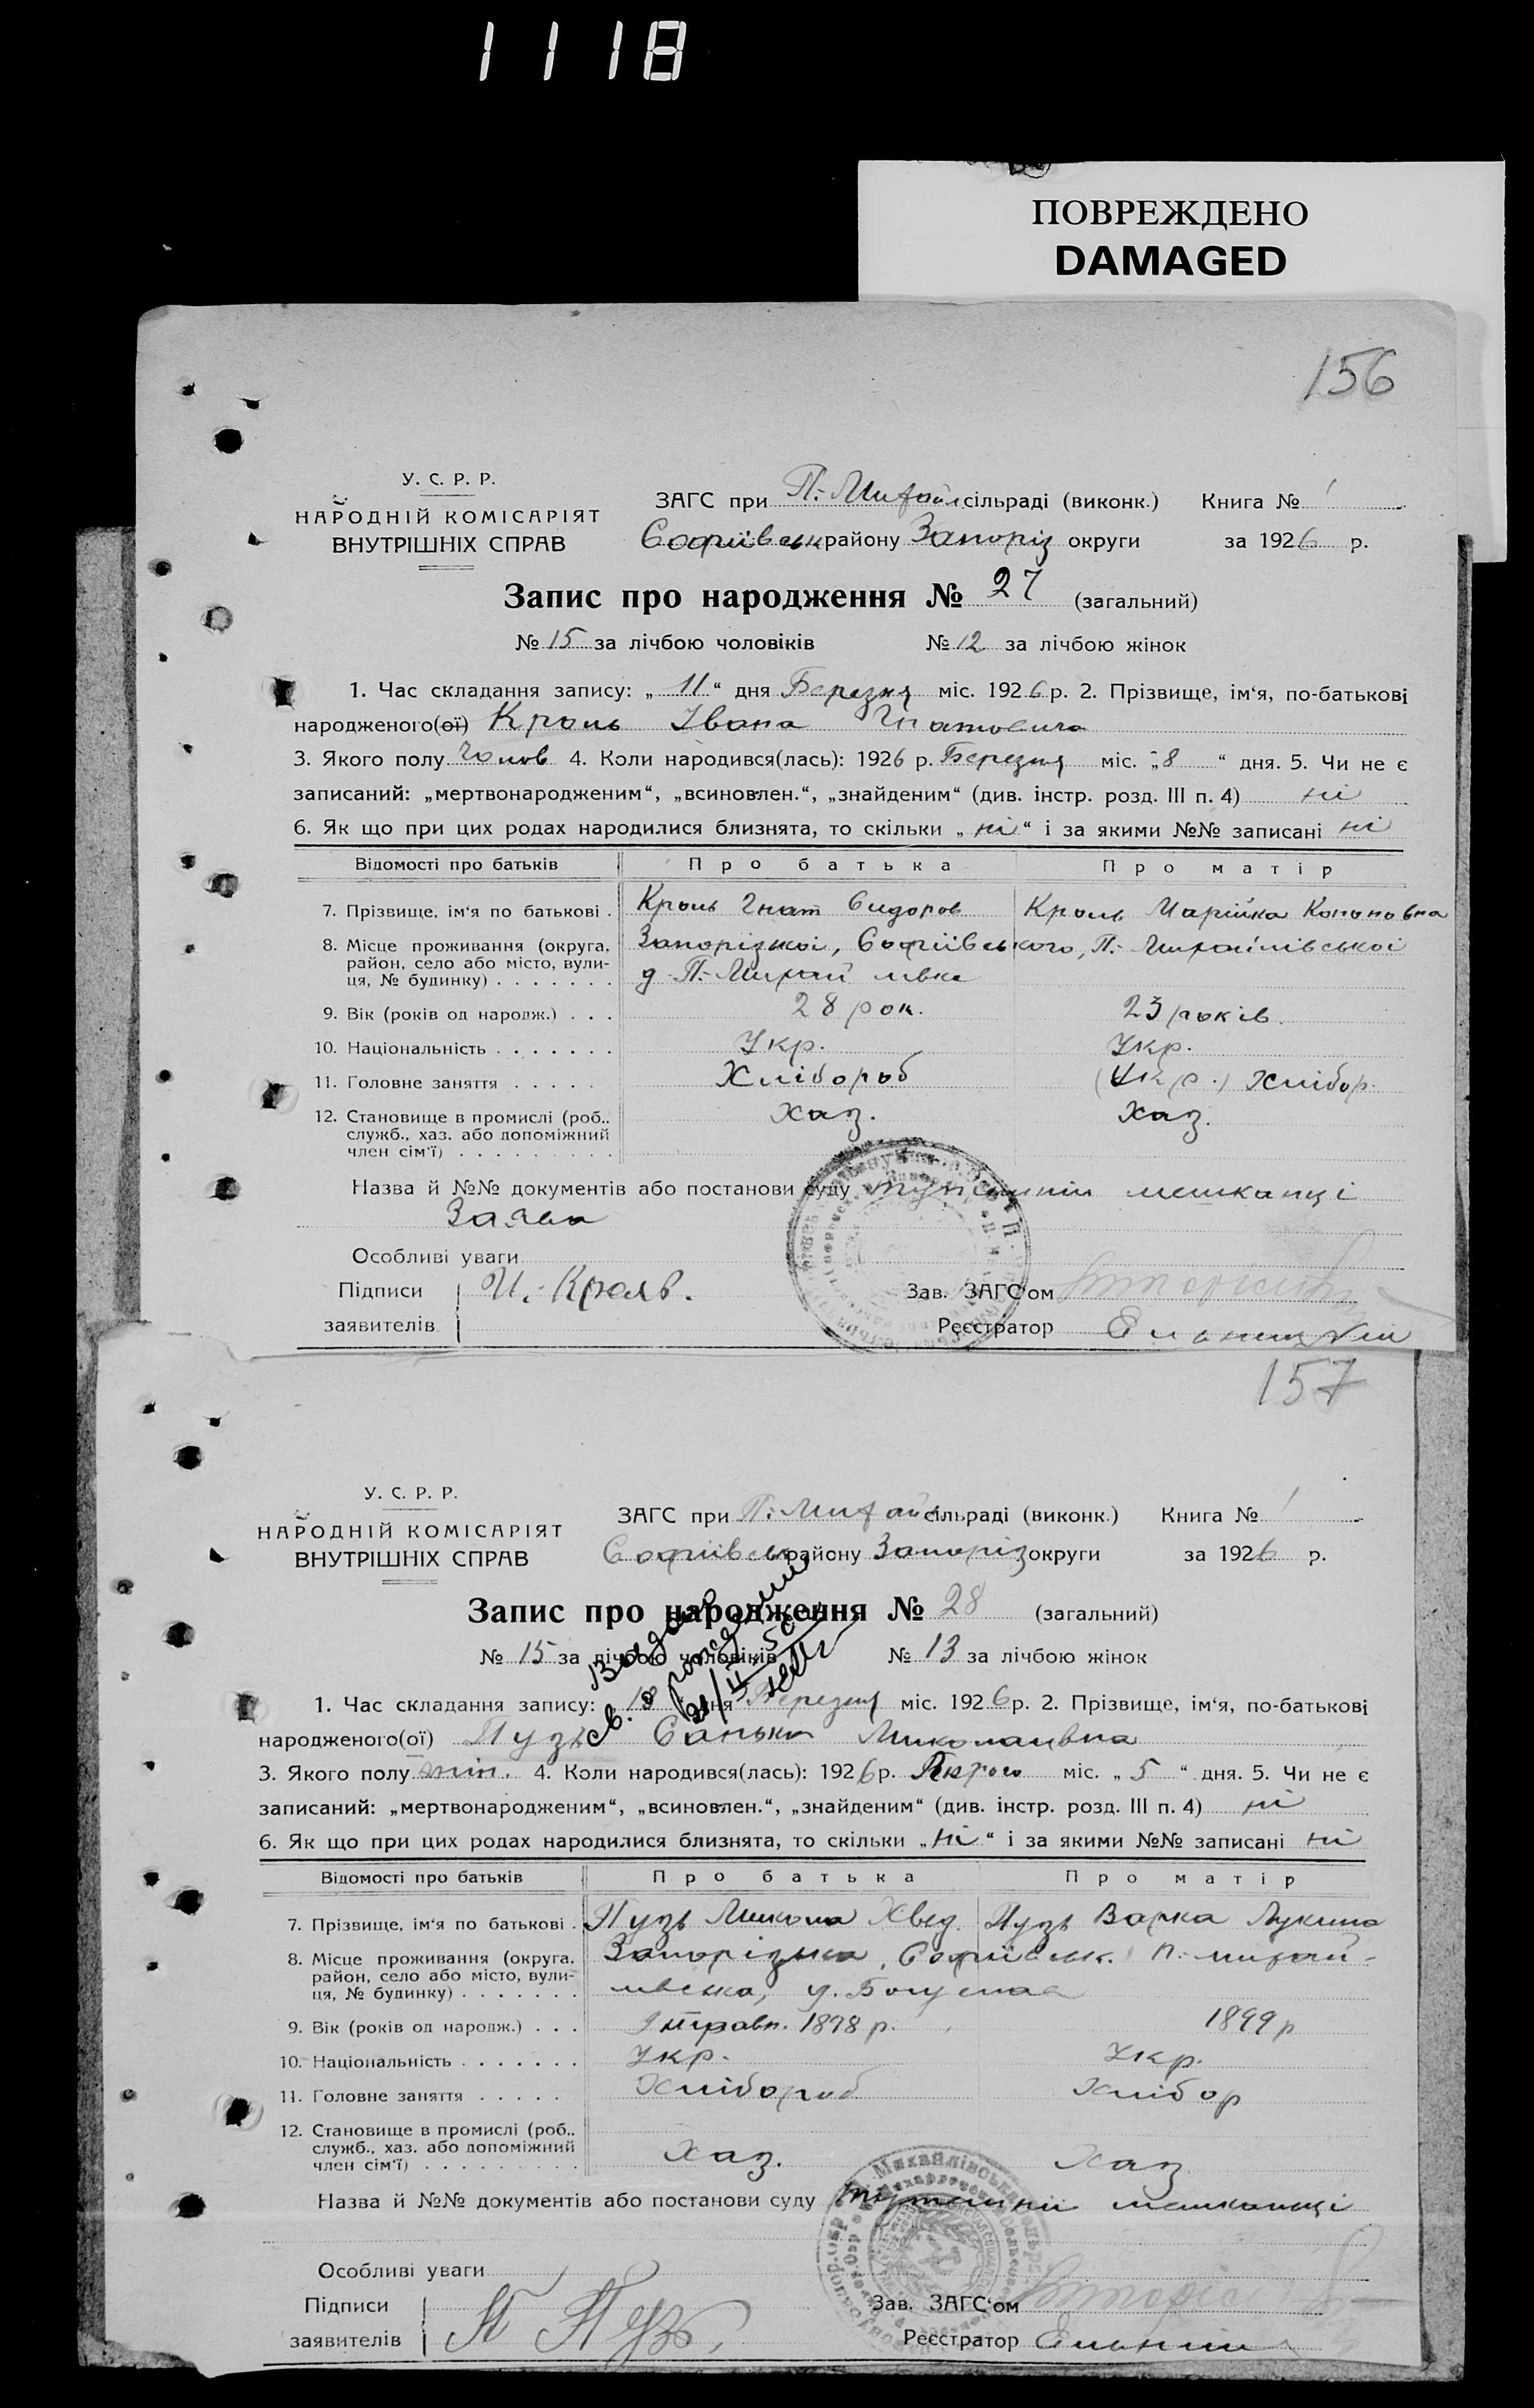 1118
ПОВРЕЖДЕНО
DAMAGED
156
У. С. Р. Р.
НАРОДНІЙ КОМІСАРІЯТ
ВНУТРІШНІХ СПРАВ
ЗАГС при П.-Михайл сільраді (виконк.) Книга № 1
Софиівськ району Запоріз округи за 1926 р.
Запис про народження № 27 (загальний)
№ 15 за лічбою чоловіків № 12 за лічбою жінок
1. Час складання запису: „ 11 “ дня Березня міс. 1926 р. 2. Прізвище, ім‘я, по-батькові
народженого(ої) Кроль Івана Гнатовича
3. Якого полу Чолов 4. Коли народився(лась): 1926 р. Березня міс. „ 8 “ дня. 5. Чи не є
записаний: „мертвонародженим“, „всиновлен.“, „знайденим“ (див. інстр. розд. III п. 4) ні
6. Як що при цих родах народилися близнята, то скільки „ ні “ і за якими №№ записані ні
Відомості про батьків Про батька Про матір
7. Прізвище, ім‘я по батькові . Кроль Гнат Сидоров Кроль Марійка Кононовна
8. Місце проживання (округа, район, село або місто, вулиця, № будинку) Запорізкої, Софиівського, П.-Михайлівської
д. П.-Михайлівка
9. Вік (років од народж.) . . . 28 рок. 23 років.
10. Національність . . . . . . . Укр. Укр.
11. Головне заняття . . . . . Хлібороб (Укр.) Хлібор.
12. Становище в промислі (роб.,
служб., хаз. або допоміжний
член сім‘ї) . . . . . . . . . Хаз. Хаз.
Назва й №№ документів або постанови суду тутешні мешканці
Заява
Особливі уваги
Підписи И. Кроль.
заявителів
Зав. ЗАГС‘ом
Реєстратор
157
У. С. Р. Р.
НАРОДНІЙ КОМІСАРІЯТ
ВНУТРІШНІХ СПРАВ
ЗАГС при П.-Михай сільраді (виконк.) Книга № 1
Софиівськ району Запоріз округи за 1926 р.
Запис про народження № 28 (загальний)
№ 15 за лічбою чоловіків № 13 за лічбою жінок
1. Час складання запису: „ 18 “ дня Березня міс. 1926 р. 2. Прізвище, ім‘я, по-батькові
народженого(ої) Пузь Санька Миколаивна
3. Якого полу жін. 4. Коли народився(лась): 1926 р. міс. „ 5 “ дня. 5. Чи не є
записаний: „мертвонародженим“, „всиновлен.“, „знайденим“ (див. інстр. розд. III п. 4) ні
6. Як що при цих родах народилися близнята, то скільки „ ні “ і за якими №№ записані ні
Відомості про батьків Про батька Про матір
7. Прізвище, ім‘я по батькові . Пузь Микола Хвед. Пузь Варка Лукина
8. Місце проживання (округа, Запорізька, Софиівськ. П.-Михай-
район, село або місто, вули-
ця, № будинку) . . . . . . . лівська,
9. Вік (років од народж.) . . . 9 травн. 1898 р. 1899 р
10. Національність . . . . . . . Укр. Укр.
11. Головне заняття . . . . . Хлібороб Хлібор
12. Становище в промислі (роб.,
служб., хаз. або допоміжний
член сім‘ї) . . . . . . . . . Хаз. Хаз
Назва й №№ документів або постанови суду тутешні мешканці
Особливі уваги
Підписи
заявителів Пузь
Зав. ЗАГС‘ом
Реєстратор